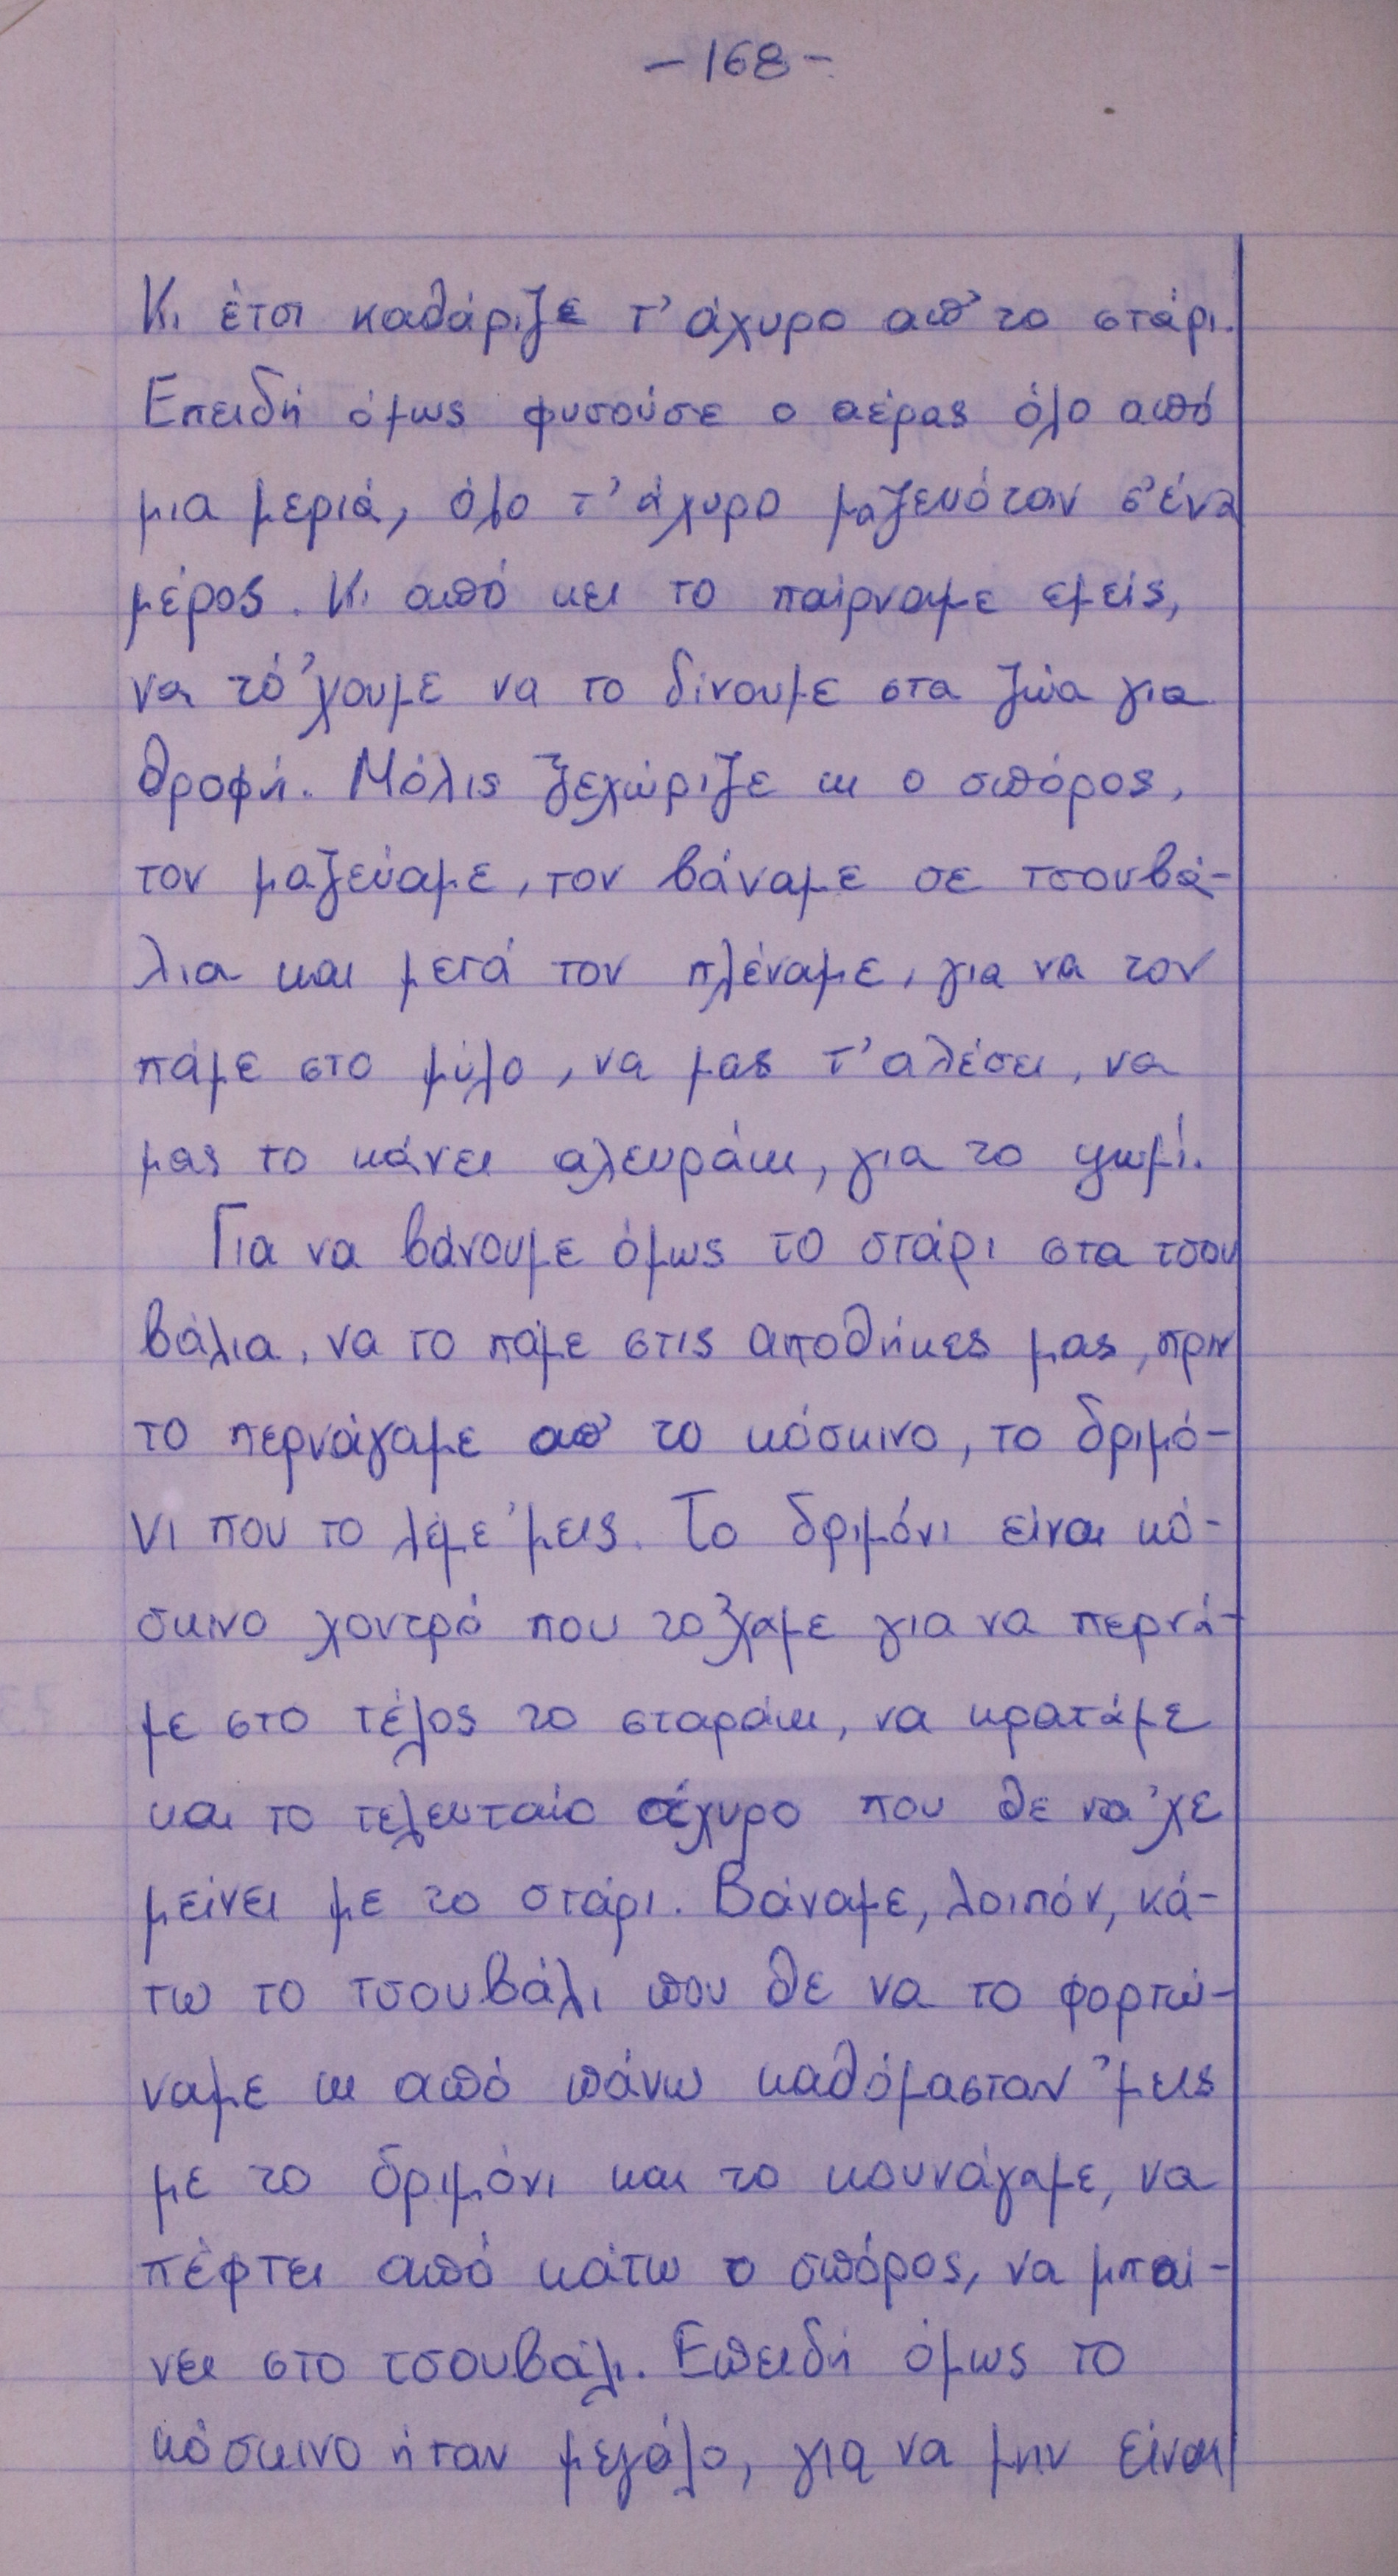 - 168 -
Κι έτσι καθάριζε τ' άχυρο απ' το στάρι.
Επειδή όμως φυσούσε ο αέρας όλο από
μια μεριά, όλο τ' άχυρο μαζευόταν σ' ένα
μέρος. Κι από κει το παίρναμε εμείς,
να τό 'χουμε να το δίνουμε στα ζώα για
θροφή. Μόλις ξεχώριζε κι ο σπόρος,
τον μαζεύαμε, τον βάναμε σε τσουβά-
λια και μετά τον πλέναμε, για να τον
πάμε στο μύλο, να μας τ' αλέσει, να
μας το κάνει αλευράκι, για το ψωμί.
Για να βάνουμε όμως το στάρι στα τσου
βάλια, να το πάμε στις αποθήκες μας, πριν
το περνάγαμε απ' το κόσκινο, το δριμό-
νι που το λέμε 'μεις. Το δριμόνι είναι κό-
σκινο χοντρό που το 'χαμε για να περνά-
με στο τέλος το σταράκι, να κρατάμε
και το τελευταίο άχυρο που θε να 'χε
μείνει με το στάρι. Βάναμε, λοιπόν, κά-
τω το τσουβάλι που θε να το φορτώ-
ναμε κι από πάνω καθόμασταν 'μεις
με το δριμόνι και το κουνάγαμε, να
πέφτει από κάτω ο σπόρος, να μπαί-
νει στο τσουβάλι. Επειδή όμως το
κόσκινο ήταν μεγάλο, για να μην είναι